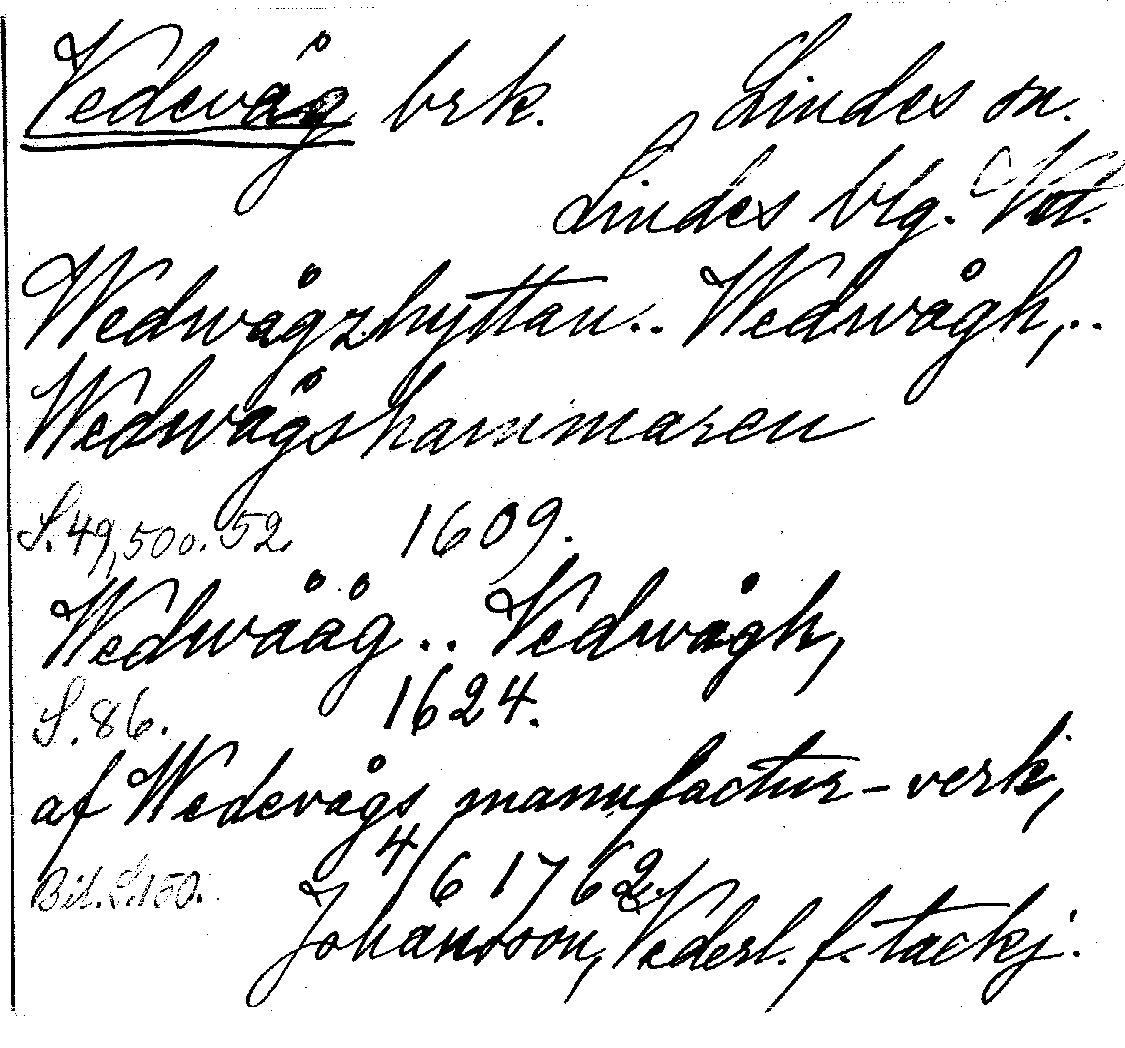 Vedevåg brk. Lindes sn.
Lindes blg. Vstm.
Wedwågzhyttan.. Wedwågh,..
Wedwågshammaren
S. 49, 50 o. 52. 1609.
Wedwååg.. Vedwågh,
S. 86. 1624.
af Wedevågs manufactur-verk,
Bil. S. 150. 4/6 1762
Johansson, Vederl. f. tackj.